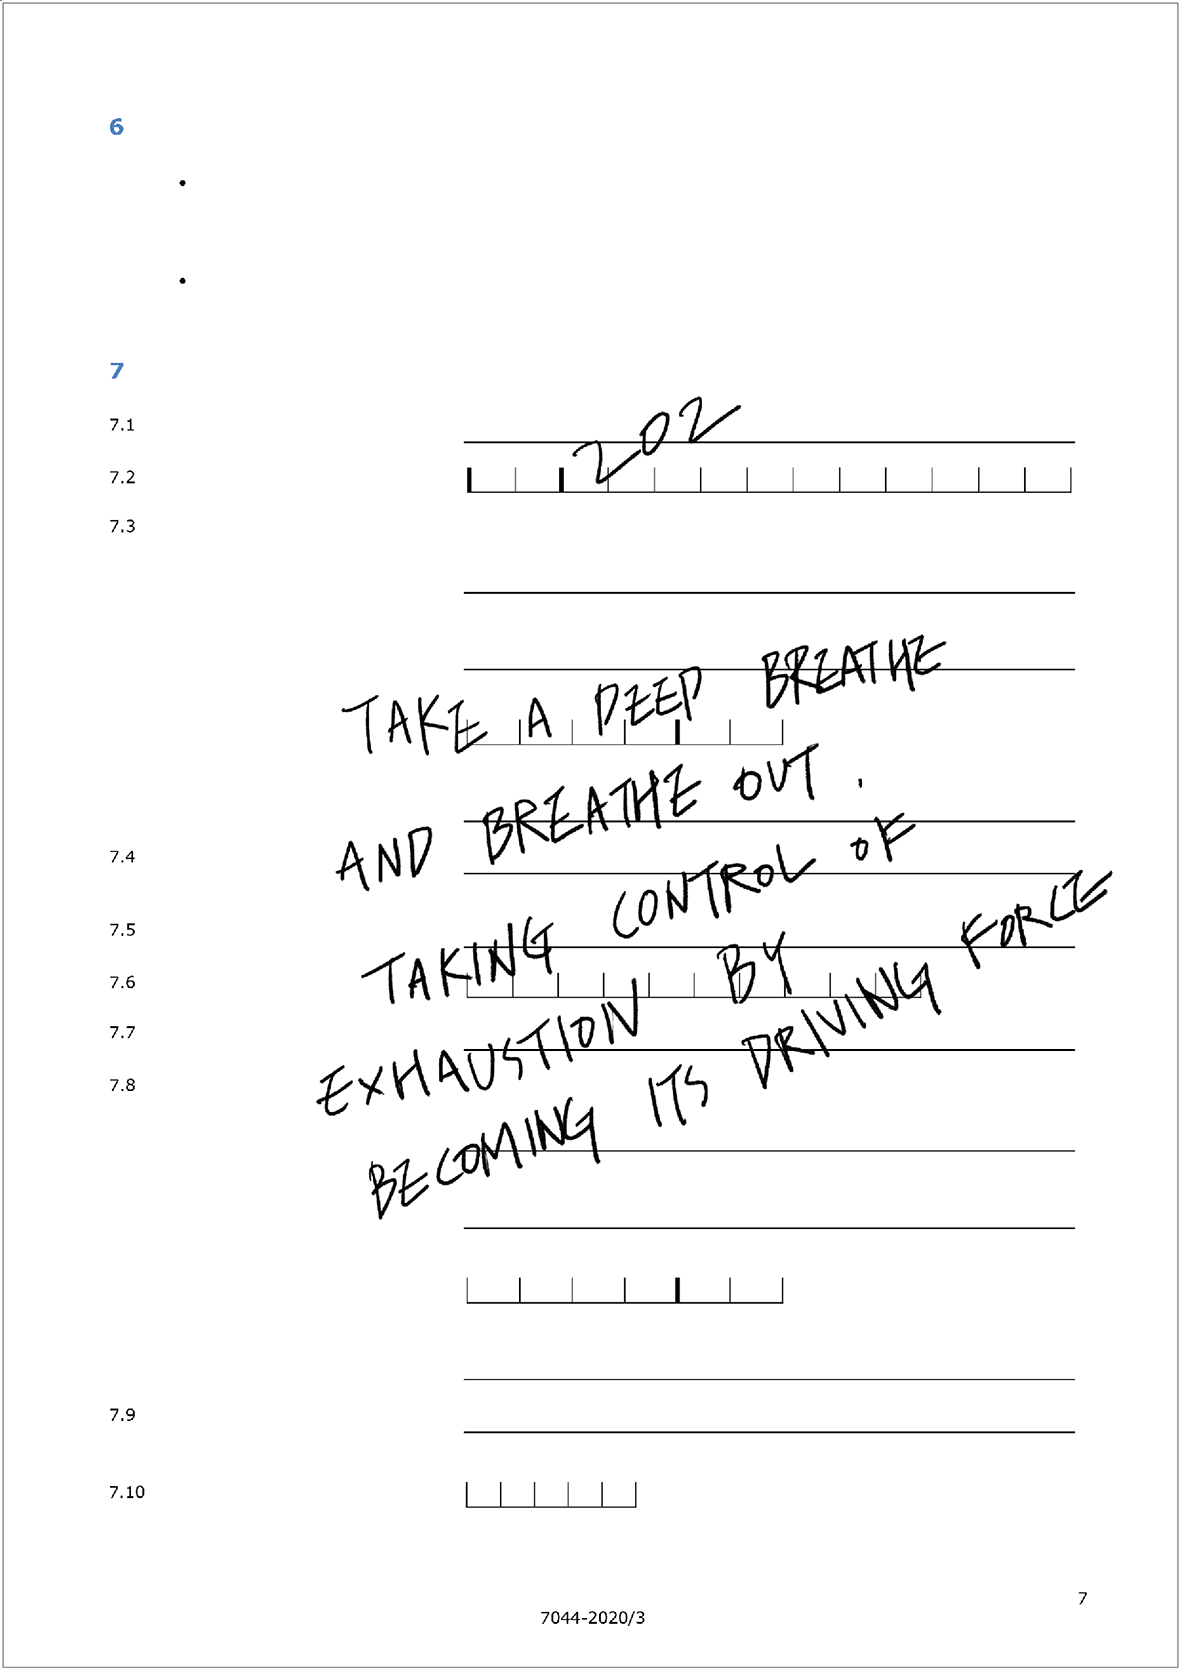 6
•
•
7
7.1
202
7.2
7.3
TAKE A DEEP BREATHE
AND BREATHE OUT.
7.4
TAKING CONTROL OF
7.5
7.6
EXHAUSTION BY
7.7
7.8
BECOMING ITS DRIVING FORCE
7.9
7.10
7
7044-2020/3